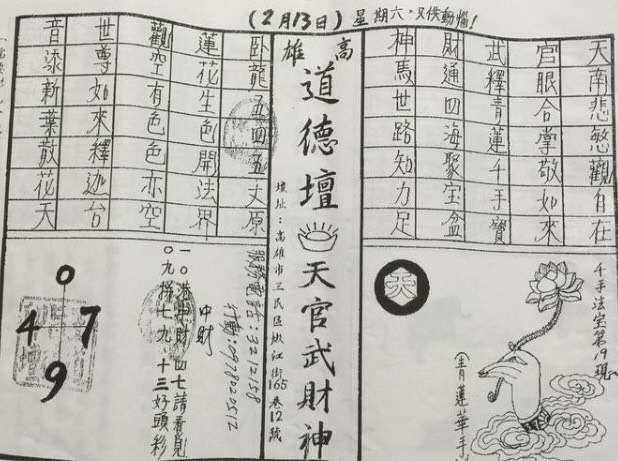 (2月13日)星期六,只供動腦!
高雄
道德壇
天官武財神
壇址:高雄市三民區嫩江街165巷12號
天南悲愍觀自在
官眼合掌敬如來
武釋青蓮千手寶
財通四海聚宝盆
神馬世路知力足
臥龍五四五丈原
蓮花生色開法界
觀空有色色亦空
世尊如來釋迦台
音添新葉散花天
千手法宝第19現
青蓮華手
天
服務電話:3212158
行動:0978020512
中財
一〇港中財四七請看覓
〇九拼七九、十三好頭彩
0
4 7
9